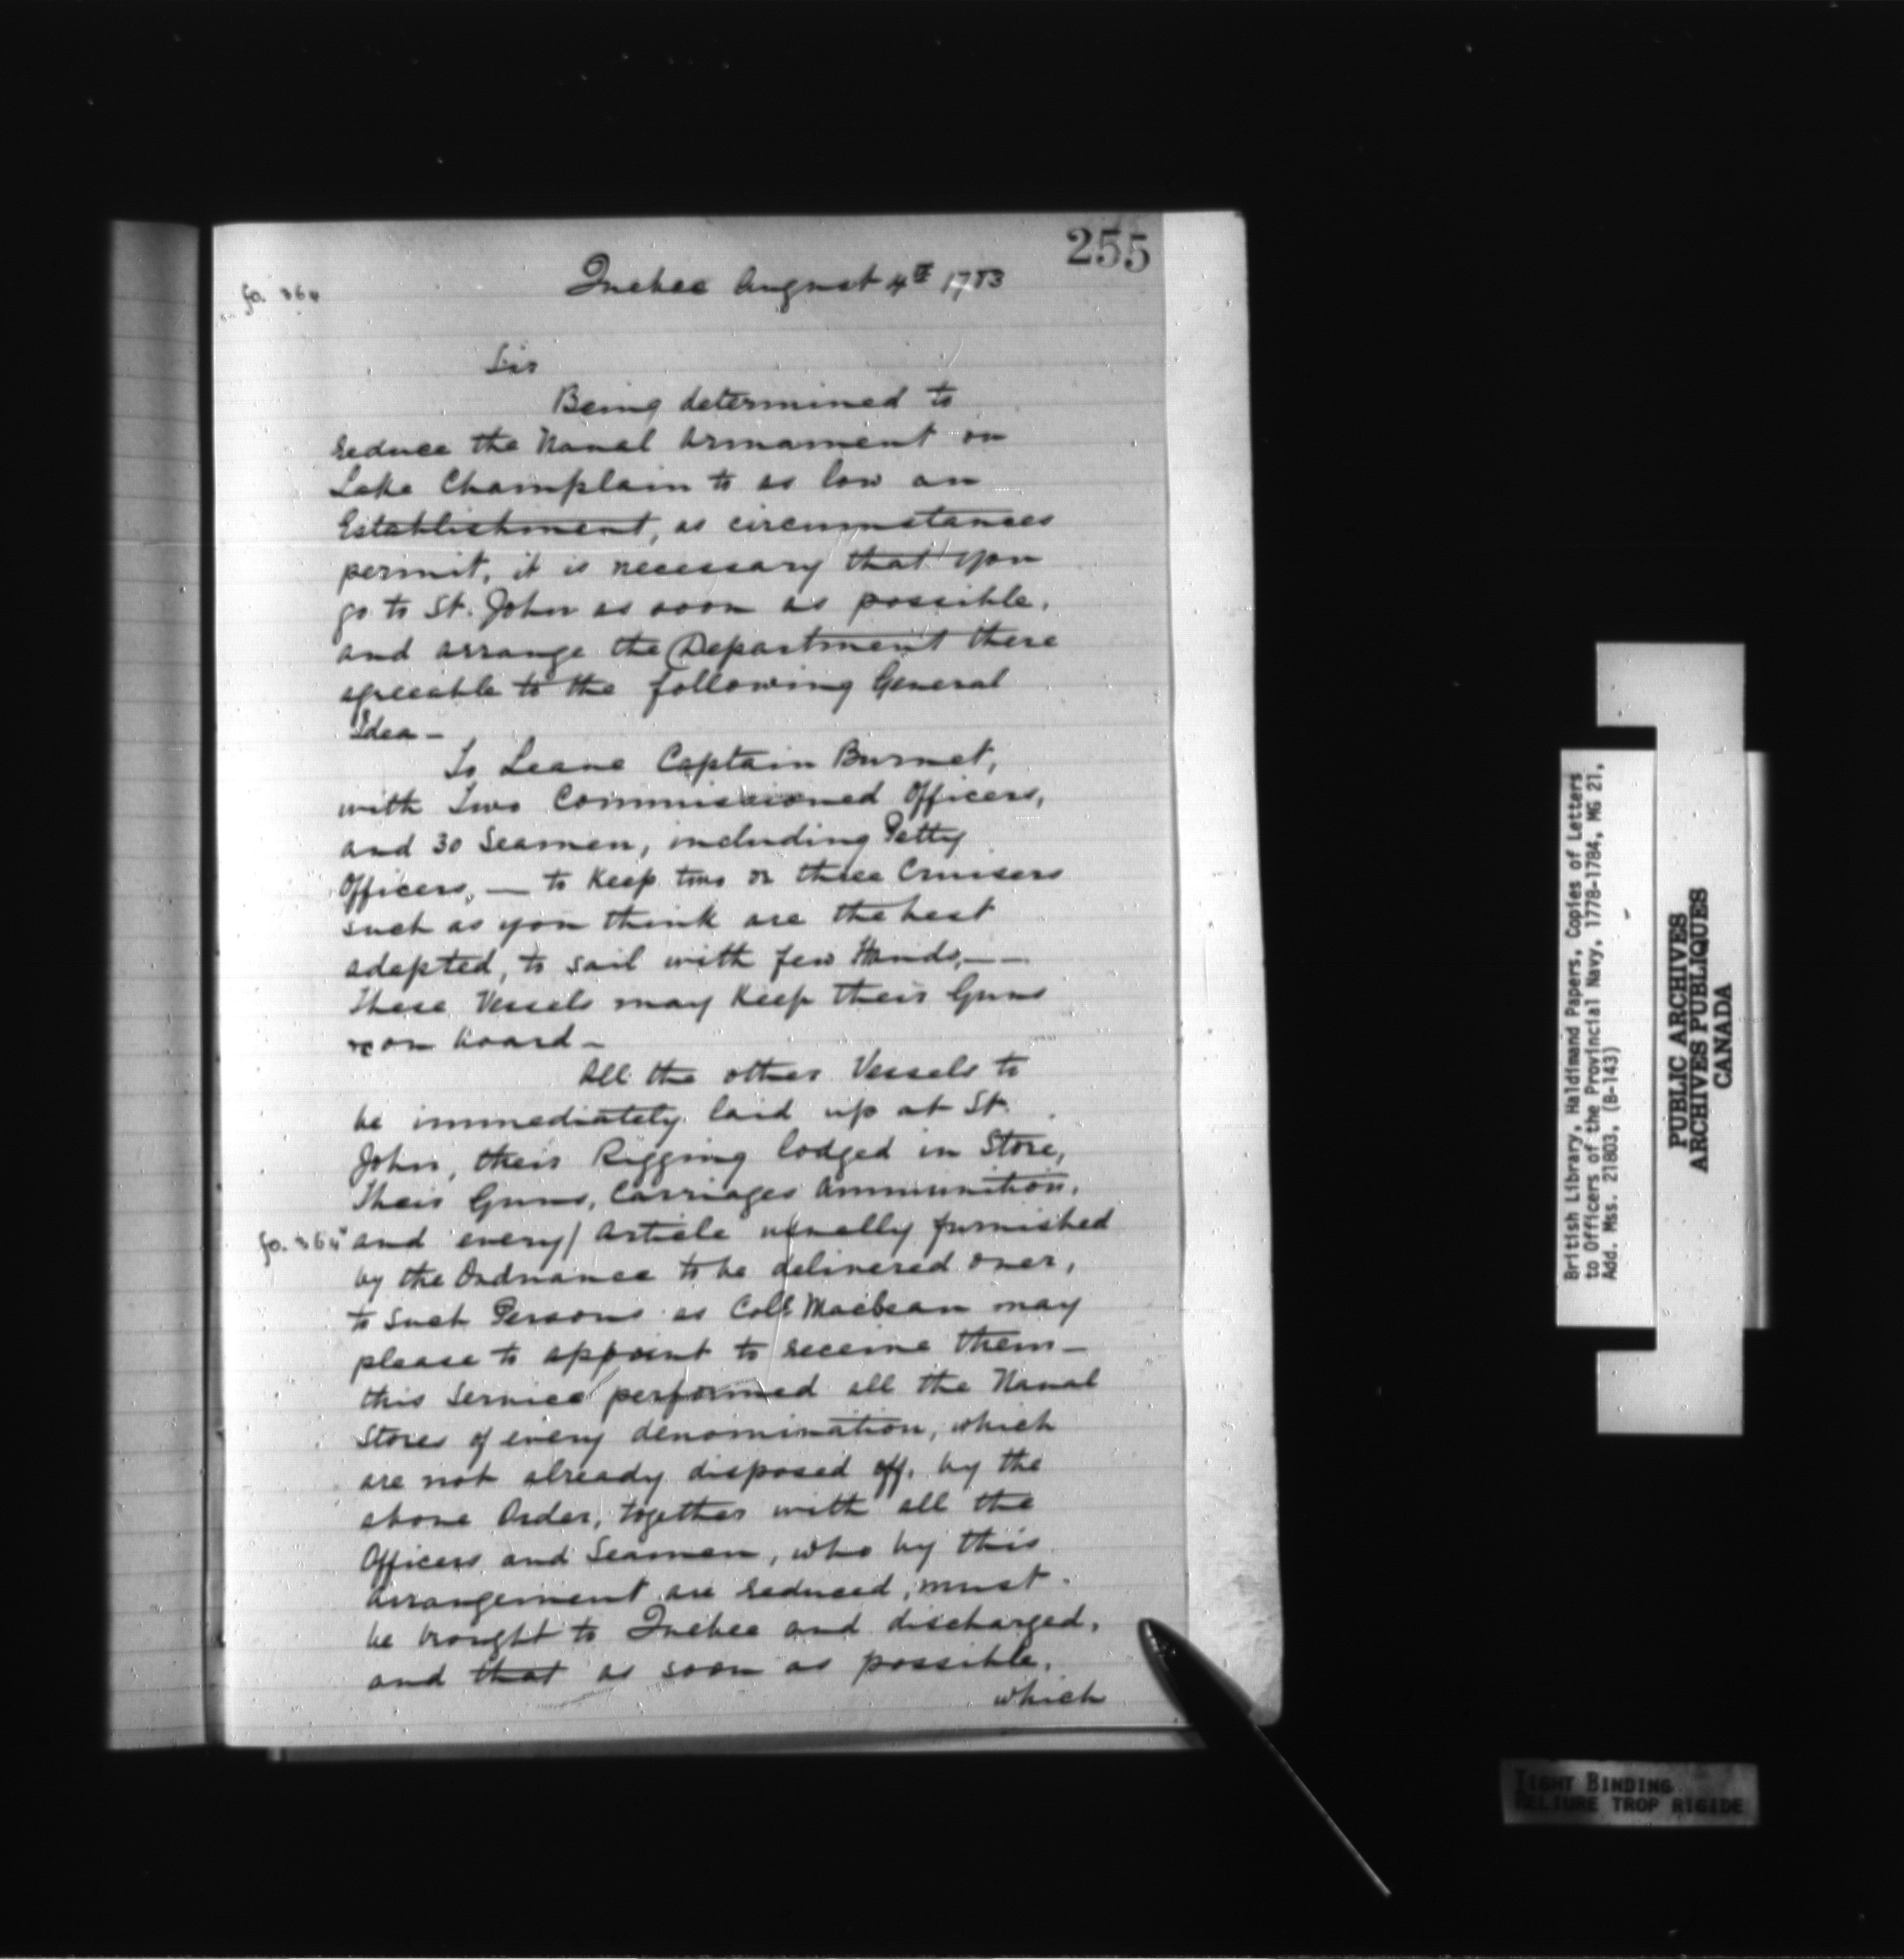 255
fo. 364
Quebec August 4th 1783
Sir
Being determined to
reduce the Naval Armament on
Lake Champlain to as low an
Establishment, as circumstances
permit, it is necessary that you
go to St. John as soon as possible,
and arrange the Department there
agreeable to the following General
Idea –
To Leave Captain Burnet,
with Two Commissioned Officers,
and 30 Seamen, including Petty
Officers, — to Keep two or three Cruisers
such as you think are the best
adapted, to sail with few Hands, — —
These Vessels may Keep their Guns
on board –
All the other Vessels to
be immediately laid up at St.
John, their Rigging lodged in Store,
Their Guns, Carriages Ammunition,
fo. 364v and every/ Article usually furnished
by the Ordnance to be delivered over,
to Such Persons as Coll. Macbean may
please to appoint to receive them –
this Service performed all the Naval
Stores of every denomination, which
are not already disposed off, by the
above Order, together with all the
Officers and Seamen, who by this
arrangement are reduced, must
be brought to Quebec and discharged,
and that as soon as possible,
which
British Library, Haldimand Papers, Copies of Letters
to Officers of the Provincial Navy, 1778-1784, MG 21,
Add. Mss. 21803, (B-143)
PUBLIC ARCHIVES
ARCHIVES PUBLIQUES
CANADA
TIGHT BINDING
RELIURE TROP RIGIDE